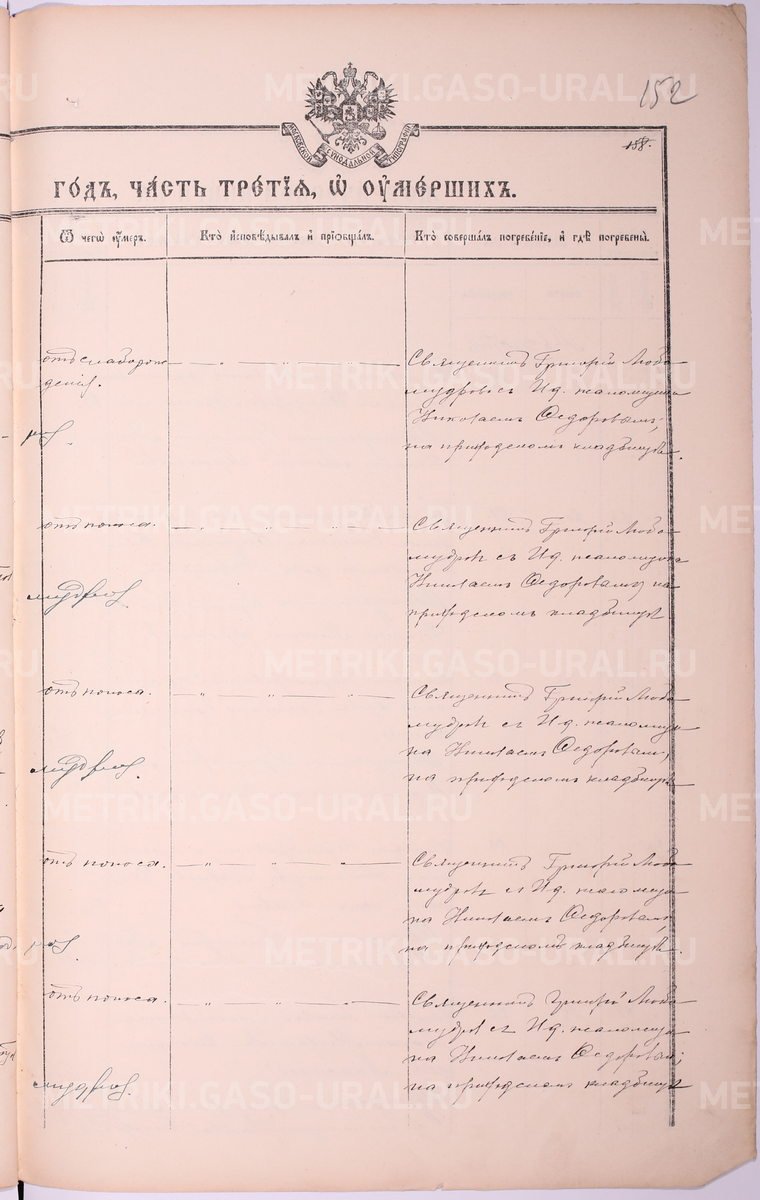 152
158.
МОСКОВСКОЙ СѴНОДАЛЬНОЙ ТИПОГРАФІИ
го́дъ, ча́сть тре́тїѧ, ѽ оу҆ме́ршихъ.
Ѿ чегѡ̀ оу҆́меръ.
Кто̀ и҆сповѣ́дывалъ и҆ прїѡбща́лъ.
Кто̀ соверша́лъ погребе́нїе, и҆ гдѣ̀ погребены̀.
отъ слаборож
денія.
— „ — „ — „ —
Священникъ Григорій Любо
мудровъ съ И. д. псаломщика
Николаемъ Ѳедоровымъ,
на приходскомъ кладбищѣ.
отъ поноса.
— „ — „ — „ —
Священникъ Григорій Любо
мудровъ съ И. д. псаломщика
Николаемъ Ѳедоровымъ, на
приходскомъ кладбищѣ
отъ поноса.
— „ — „ — „ —
Священникъ Григорій Любо
мудровъ съ И. д. псаломщи
ка Николаемъ Ѳедоровымъ,
на приходскомъ кладбищѣ
отъ поноса.
— „ — „ — „ —
Священникъ Григорій Любо
мудровъ съ И. д. псаломщи
ка Николаемъ Ѳедоровымъ,
на приходскомъ кладбищѣ.
отъ поноса.
— „ — „ — „ —
Священникъ Григорій Любо
мудровъ съ И. д. псаломщи
ка Николаемъ Ѳедоровымъ,
на приходскомъ кладбищѣ
METRIKI.GASO-URAL.RU